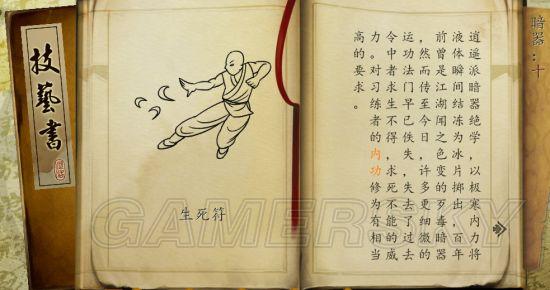 暗器：十
逍遥派暗器绝学，以极寒内力将
液体瞬间结冻为冰片掷出，百年
前曾是江湖闻之色变的歹毒暗器
，然而传至今日，许多更细微的
运功法门早已佚失，失去了过去
令中者求生不得，求死不能的威
力。对习练者的内功修为有相当
高的要求。
生死符
技藝書
GAMERSKY